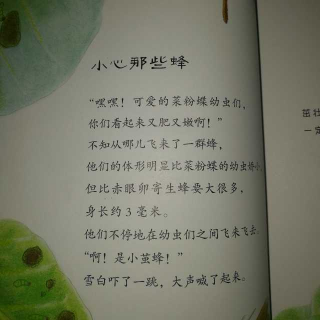 小心那些蜂
“嘿嘿！可爱的菜粉蝶幼虫们，
你们看起来又肥又嫩啊！”
不知从哪儿飞来了一群蜂，
他们的体形明显比菜粉蝶的幼虫
但比赤眼卵寄生蜂要大很多，
身长约3毫米。
他们不停地在幼虫们之间飞来飞去。
“啊！是小茧蜂！”
雪白吓了一跳，大声喊了起来。
茁壮
一定